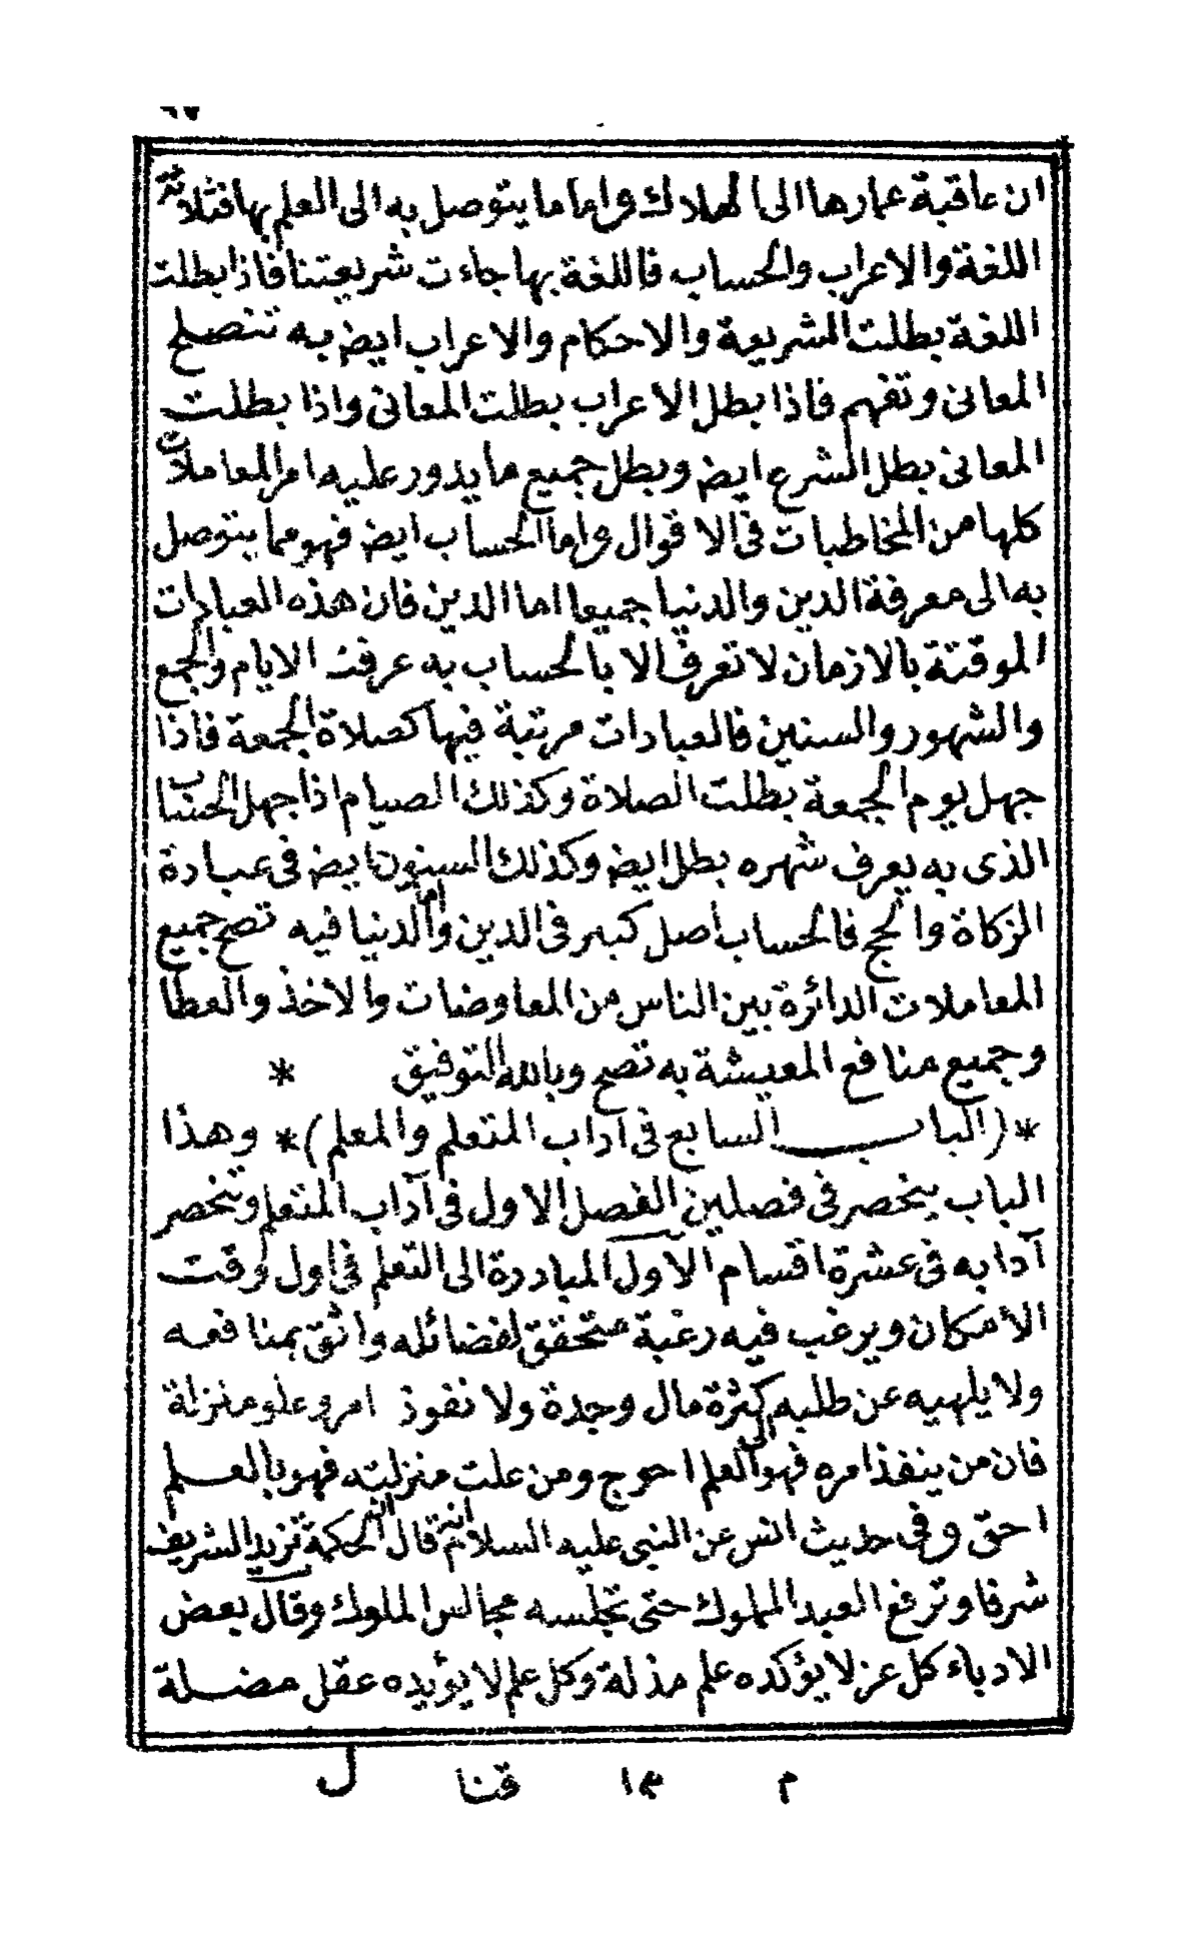 ٩٧
ان عاقبة عمارها الى الهلاك واما ما يتوصل به الى العلم بها فثلاثة
اللغة والاعراب والحساب فاللغة بها جاءت شريعتنا فاذا بطلت
اللغة بطلت الشريعة والاحكام والاعراب ايض به تنصلح
المعانى وتفهم فاذا بطل الاعراب بطلت المعانى واذا بطلت
المعانى بطل الشرع ايض وبطل جميع ما يدور عليه امر المعاملات
كلها من المخاطبات فى الاقوال واما الحساب ايض فهو مما يتوصل
به الى معرفة الدين والدنيا جميعا اما الدين فان هذه العبادات
الموقتة بالازمان لا تعرف الا بالحساب به عرفت الايام والجمع
والشهور والسنين فالعبادات مرتبة فيها كصلاة الجمعة فاذا
جهل يوم الجمعة بطلت الصلاة وكذلك الصيام اذا جهل الحساب
الذى به يعرف شهره بطل ايض وكذلك السنون ايض فى عبادة
الزكاة والحج فالحساب اصل كبير فى الدين واما الدنيا فيه تصح جميع
المعاملات الدائرة بين الناس من المعاوضات والاخذ والعطا
وجميع منافع المعيشة به تصح وبالله التوفيق *
*(الباب السابع فى آداب المتعلم والمعلم)* وهذا
الباب ينحصر فى فصلين الفصل الاول فى آداب المتعلم وتنحصر
آدابه فى عشرة اقسام الاول المبادرة الى التعلم فى اول وقت
الامكان ويرغب فيه رغبة متحقق لفضائله واثق بمنافعه
ولا يلهيه عن طلبه كثرة مال وجدة ولا نفوذ امر وعلو منزلة
فان من ينفذ امره فهو الى العلم احوج ومن علت منزلته فهو بالعلم
احق وفى حديث انس عن النبى عليه السلام انه قال ان الحكمة تزيد الشريف
شرفا وترفع العبد المملوك حتى تجلسه مجالس الملوك وقال بعض
الادباء كل عز لا يؤكده علم مذلة وكل علم لا يؤيده عقل مضلة
م ١٣ قنا ل